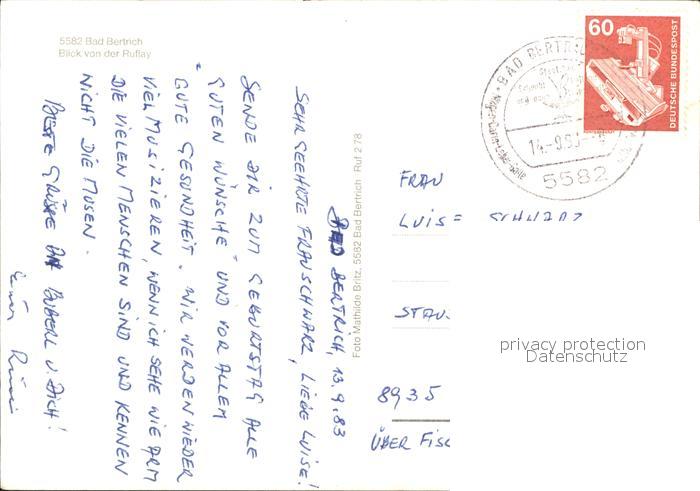 5582 Bad Bertrich
Blick von der Rußlay
BAD BERTRICH, 13.9.83
SEHR GEEHRTE FRAU SCHWARZ, LIEBE LUISE!
SENDE DIR ZUM GEBURTSTAG ALLE
GUTEN WÜNSCHE UND VOR ALLEM
"GUTE GESUNDHEIT". WIR WERDEN WIEDER
VIEL MUSIZIEREN, WENN ICH SEHE WIE ARM
DIE VIELEN MENSCHEN SIND UND KENNEN
NICHT DIE MUSEN.
BESTE GRÜSSE AN BUBERL U. DICH!
Foto Mathilde Britz, 5582 Bad Bertrich · Ruf 278
60
DEUTSCHE BUNDESPOST
BAD BERTRICH
5582
FRAU
LUISE SCHWARZ
STAU
8935
ÜBER FISC
privacy protection
Datenschutz